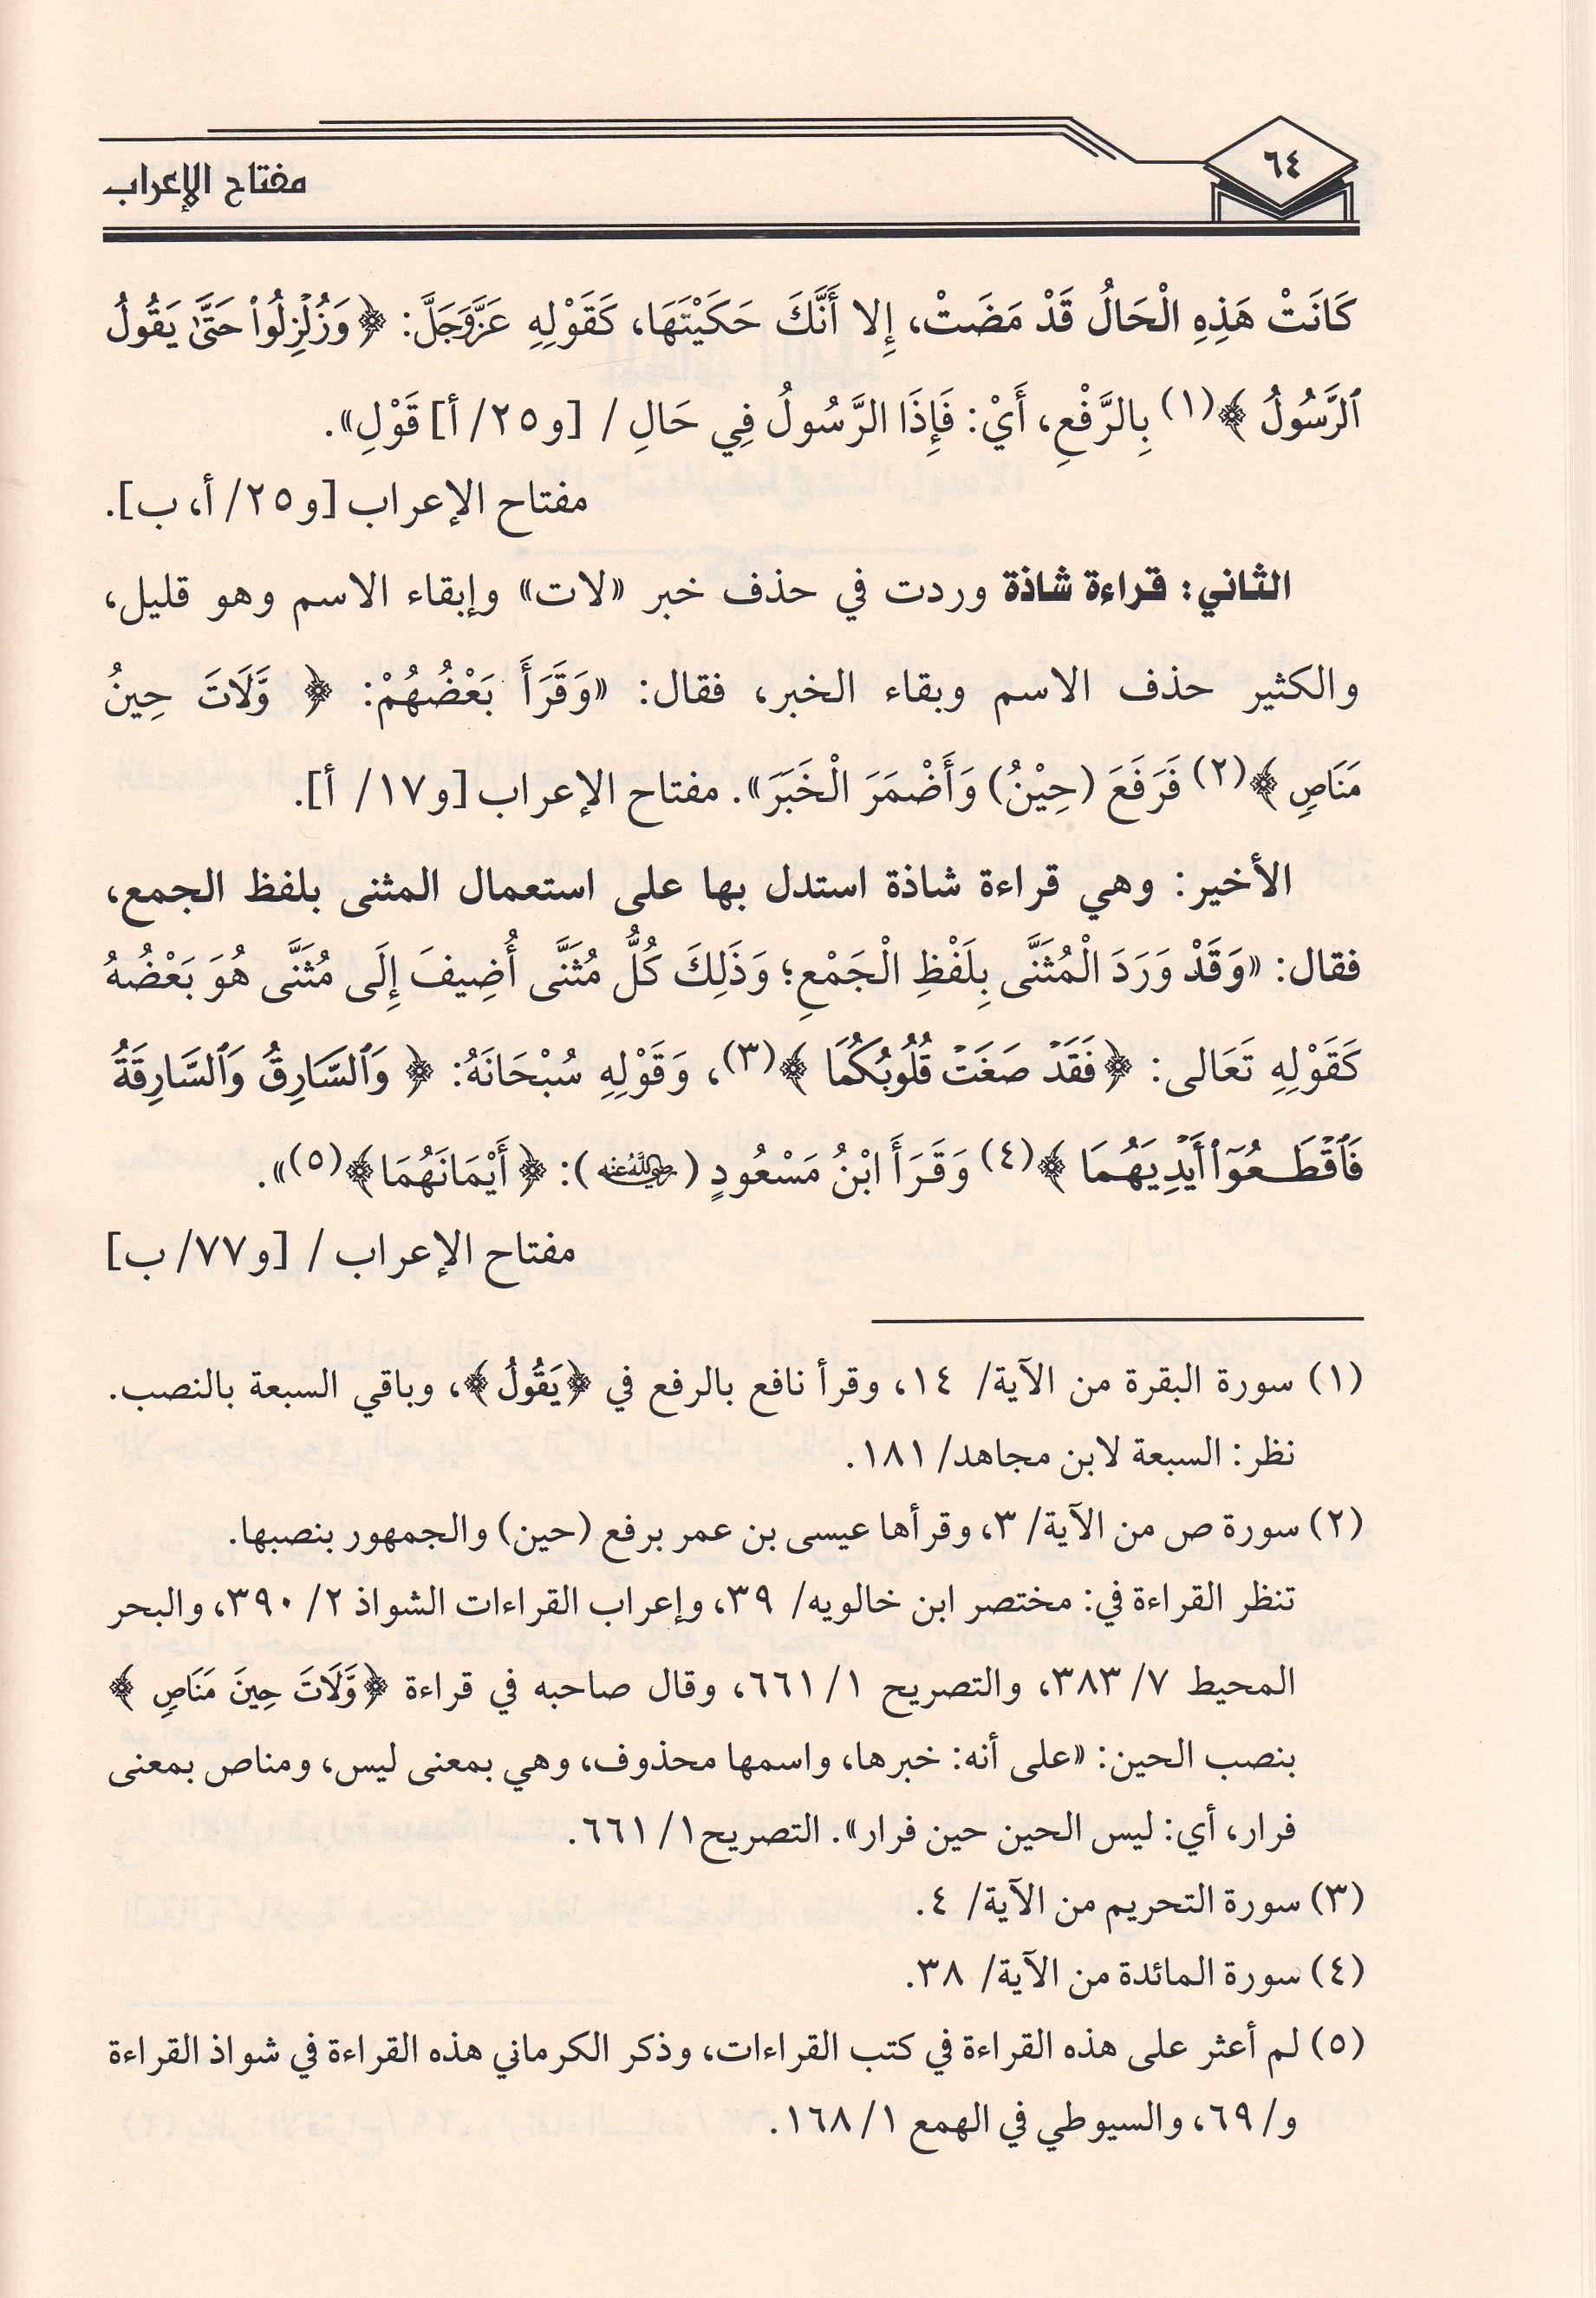 ٦٤
مفتاح الإعراب
كَانَتْ هَذِهِ الْحَالُ قَدْ مَضَتْ، إِلا أَنَّكَ حَكَيْتَهَا، كَقَوْلِهِ عَزَّوَجَلَّ: ﴿وَزُلْزِلُوا۟ حَتَّىٰ يَقُولُ
ٱلرَّسُولُ﴾(١) بِالرَّفْعِ، أَيْ: فَإِذَا الرَّسُولُ فِي حَالِ / [و٢٥/ أ] قَوْلِ».
مفتاح الإعراب [و٢٥/ أ، ب].
الثاني: قراءة شاذة وردت في حذف خبر «لات» وإبقاء الاسم وهو قليل،
والكثير حذف الاسم وبقاء الخبر، فقال: «وَقَرَأَ بَعْضُهُمْ: ﴿ وَّلَاتَ حِينُ
مَنَاصٍ ﴾(٢) فَرَفَعَ (حِيْنُ) وَأَضْمَرَ الْخَبَرَ». مفتاح الإعراب [و١٧/ أ].
الأخير: وهي قراءة شاذة استدل بها على استعمال المثنى بلفظ الجمع،
فقال: «وَقَدْ وَرَدَ الْمُثَنَّى بِلَفْظِ الْجَمْعِ؛ وَذَلِكَ كُلُّ مُثَنَّى أُضِيفَ إِلَى مُثَنَّى هُوَ بَعْضُهُ
كَقَوْلِهِ تَعَالى: ﴿فَقَدْ صَغَتْ قُلُوبُكُمَا ﴾(٣)، وَقَوْلِهِ سُبْحَانَهُ: ﴿ وَٱلسَّارِقُ وَٱلسَّارِقَةُ
فَٱقْطَعُوٓا۟ أَيْدِيَهُمَا ﴾(٤) وَقَرَأَ ابْنُ مَسْعُودٍ (رضي الله عنه): ﴿أَيْمَانَهُمَا﴾(٥)».
مفتاح الإعراب / [و٧٧/ ب]
(١) سورة البقرة من الآية/ ١٤، وقرأ نافع بالرفع في ﴿يَقُولُ﴾، وباقي السبعة بالنصب.
نظر: السبعة لابن مجاهد/ ١٨١.
(٢) سورة ص من الآية/ ٣، وقرأها عيسى بن عمر برفع (حين) والجمهور بنصبها.
تنظر القراءة في: مختصر ابن خالويه/ ٣٩، وإعراب القراءات الشواذ ٢/ ٣٩٠، والبحر
المحيط ٧/ ٣٨٣، والتصريح ١/ ٦٦١، وقال صاحبه في قراءة ﴿وَّلَاتَ حِينَ مَنَاصٍ ﴾
بنصب الحين: «على أنه: خبرها، واسمها محذوف، وهي بمعنى ليس، ومناص بمعنى
فرار، أي: ليس الحين حين فرار». التصريح١/ ٦٦١.
(٣) سورة التحريم من الآية/ ٤.
(٤) سورة المائدة من الآية/ ٣٨.
(٥) لم أعثر على هذه القراءة في كتب القراءات، وذكر الكرماني هذه القراءة في شواذ القراءة
و/ ٦٩، والسيوطي في الهمع ١/ ١٦٨.